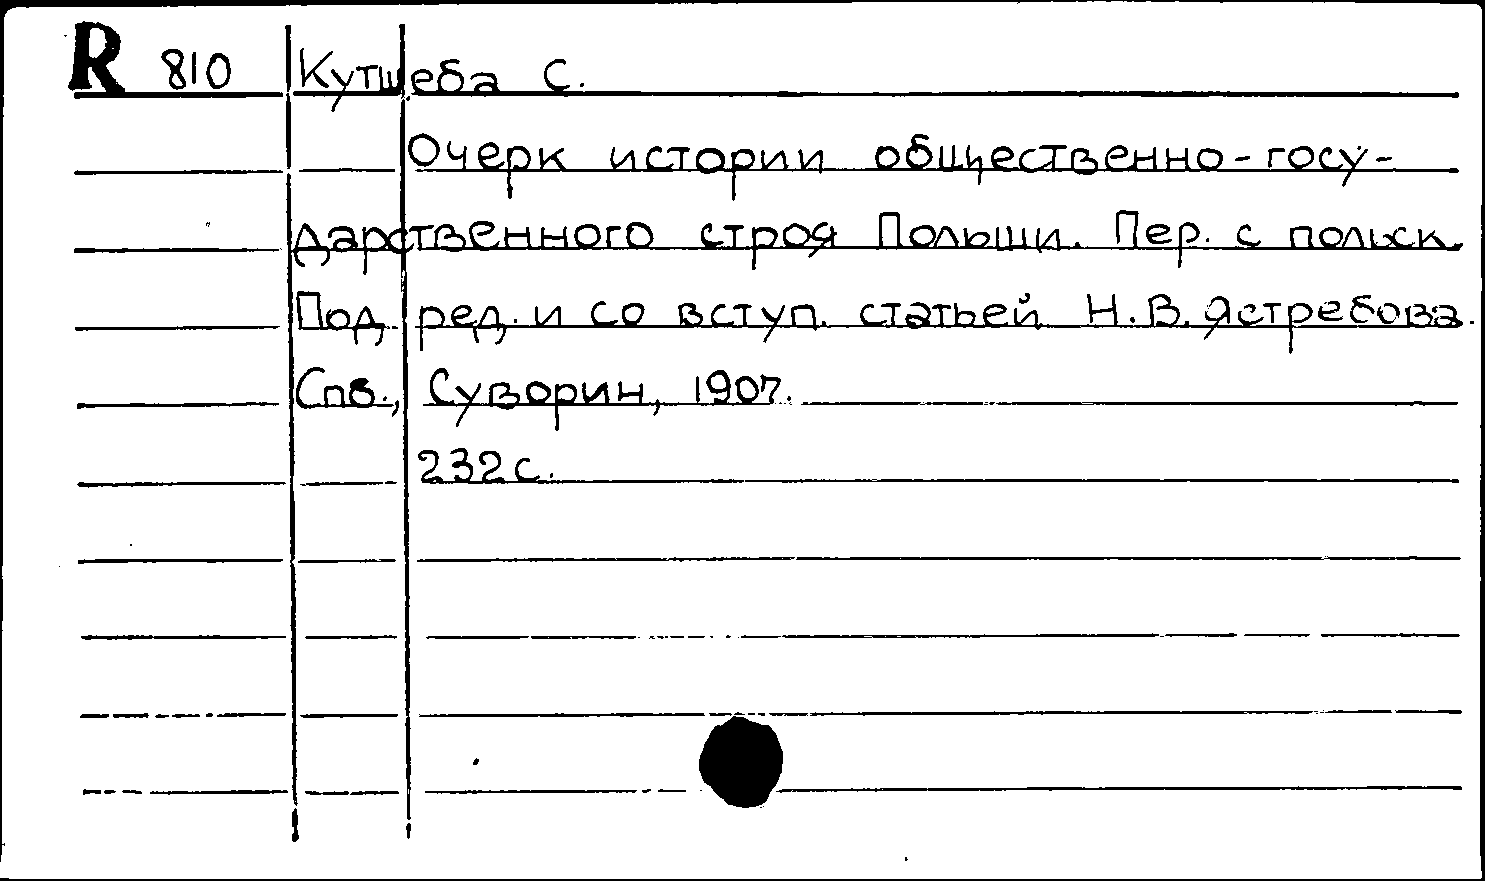 R 810 Кутшеба С.
Очерк истории общественно-госу-
дарственного строя Польши. Пер. с польск.
Под ред. и со вступ. статьей Н.В. Ястребова.
Спб., Суворин, 1907.
232 с.